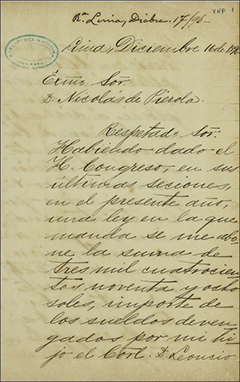 R. Lima, Dicbre. 17/96-
VNP 1
Lima, Diciembre 11 de 189
Exmo. Sor.
D. Nicolás de Pierola
Respetado Sor.
Habiendo dado el
H. Congreso, en sus
últimas seciones,
en el presente año,
una ley en la que
manda se me abo
ne la suma de
tres mil cuatrocien
tos noventa y ocho
soles, importe de
los sueldos deven
gados por mi hi
jo el Corl. D. Leoncio